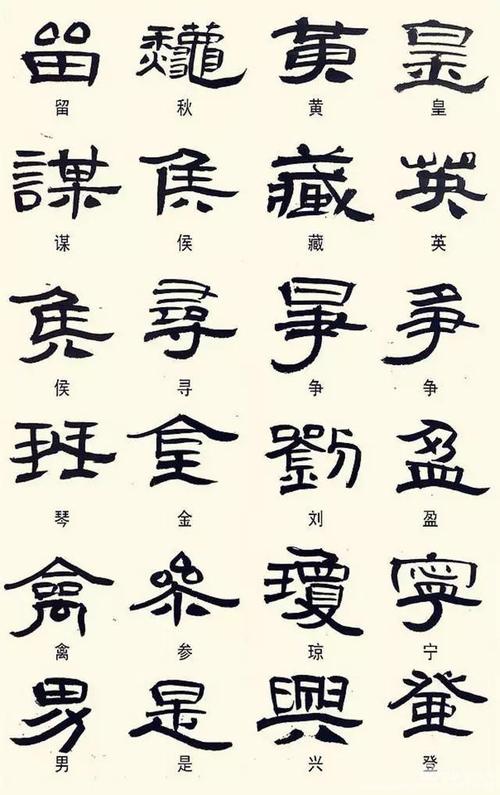 留 𪛁 黄 皇
留 秋 黄 皇
謀 侯 藏 英
谋 侯 藏 英
侯 尋 爭 爭
侯 寻 争 争
珡 金 劉 盈
琴 金 刘 盈
禽 參 瓊 寧
禽 参 琼 宁
男 是 興 登
男 是 兴 登